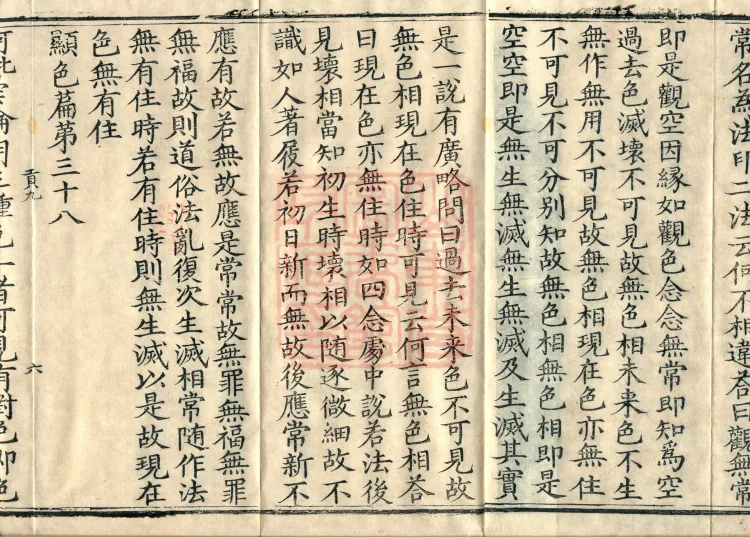 常名爲法印二法云何不相違荅曰觀無常
即是觀空因縁如觀色念念無常即知爲空
過去色滅壞不可見故無色相未来色不生
無作無用不可見故無色相現在色亦無住
不可見不可分别知故無色相無色相即是
空空即是無生無滅無生無滅及生滅其實
是一說有廣略問曰過去未来色不可見故
無色相現在色住時可見云何言無色相荅
曰現在色亦無住時如四念處中說若法後
見壞相當知初生時壞相以随逐微細故不
識如人著屐若初日新而無故後應常新不
應有故若無故應是常常故無罪無福無罪
無福故則道俗法亂復次生滅相常随作法
無有住時若有住時則無生滅以是故現在
色無有住
顯色篇第三十八
貢九
六
三種色一者可見有對色即色